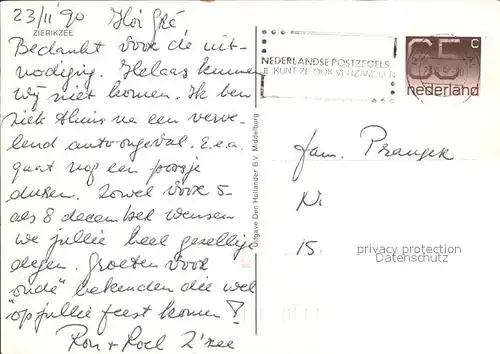 23/11 '90 Hoi Gré
ZIERIKZEE
Bedankt voor de uit-
nodiging. Helaas kunnen
wij niet komen. Ik ben
ziek thuis na een verve-
lend auto-ongeval. E.e.a.
gaat nog een poosje
duren. Zowel voor 5-
als 8 december wensen
we jullie heel gezellige
dagen. Groeten voor
"oude" bekenden die wel
"op jullie feest komen!
Ron + Roel Z'zee
Uitgave Den Hollander B.V. Middelburg
NEDERLANDSE POSTZEGELS
JE KUNT ZE OOK VERZAMELEN
65 c
nederland
fam. Prangek
N.
15.
privacy protection
Datenschutz